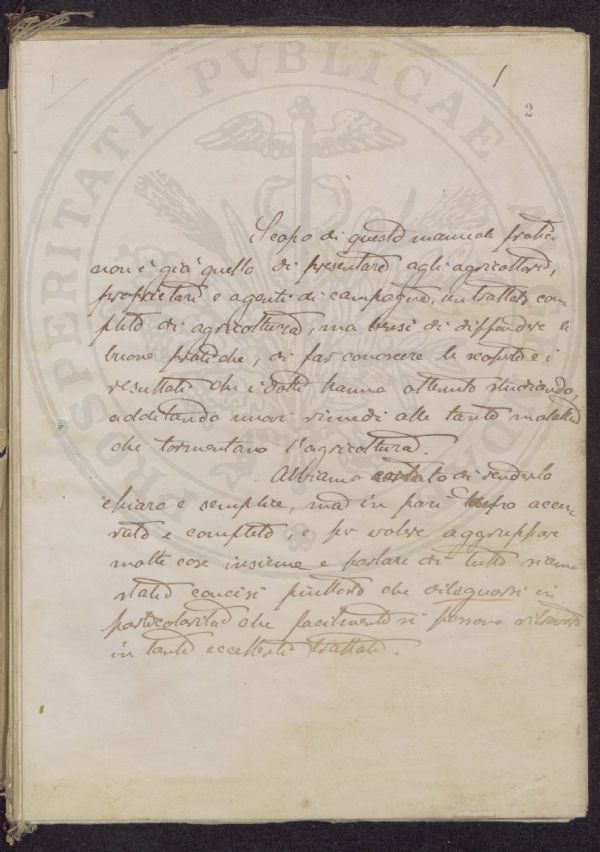 1
2
PROSPERITATI PVBLICAE
Scopo di questo manuale pratico
non è già quello di presentare agli agricoltori,
proprietari e agenti di campagna, un trattato com-
pleto di agricoltura, ma bensì di diffondere le
buone pratiche, di far conoscere le scoperte e i
resultati che i dotti hanno ottenuto studiando,
additando nuovi rimedi alle tante malattie
che tormentano l'agricoltura.
Abbiamo cercato di renderlo
chiaro e semplice, ma in pari tempo accu-
rato e completo, e per volere aggruppare
molte cose insieme e parlare di tutto siamo
stati concisi piuttosto che dileguarsi in
particolarità che facilmente si possono ritrovare
in tanti eccellenti trattati.